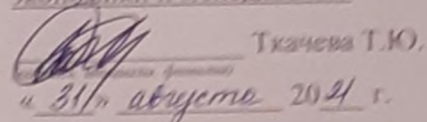 Ткачева Т.Ю.
« 31 » августа 2021 г.